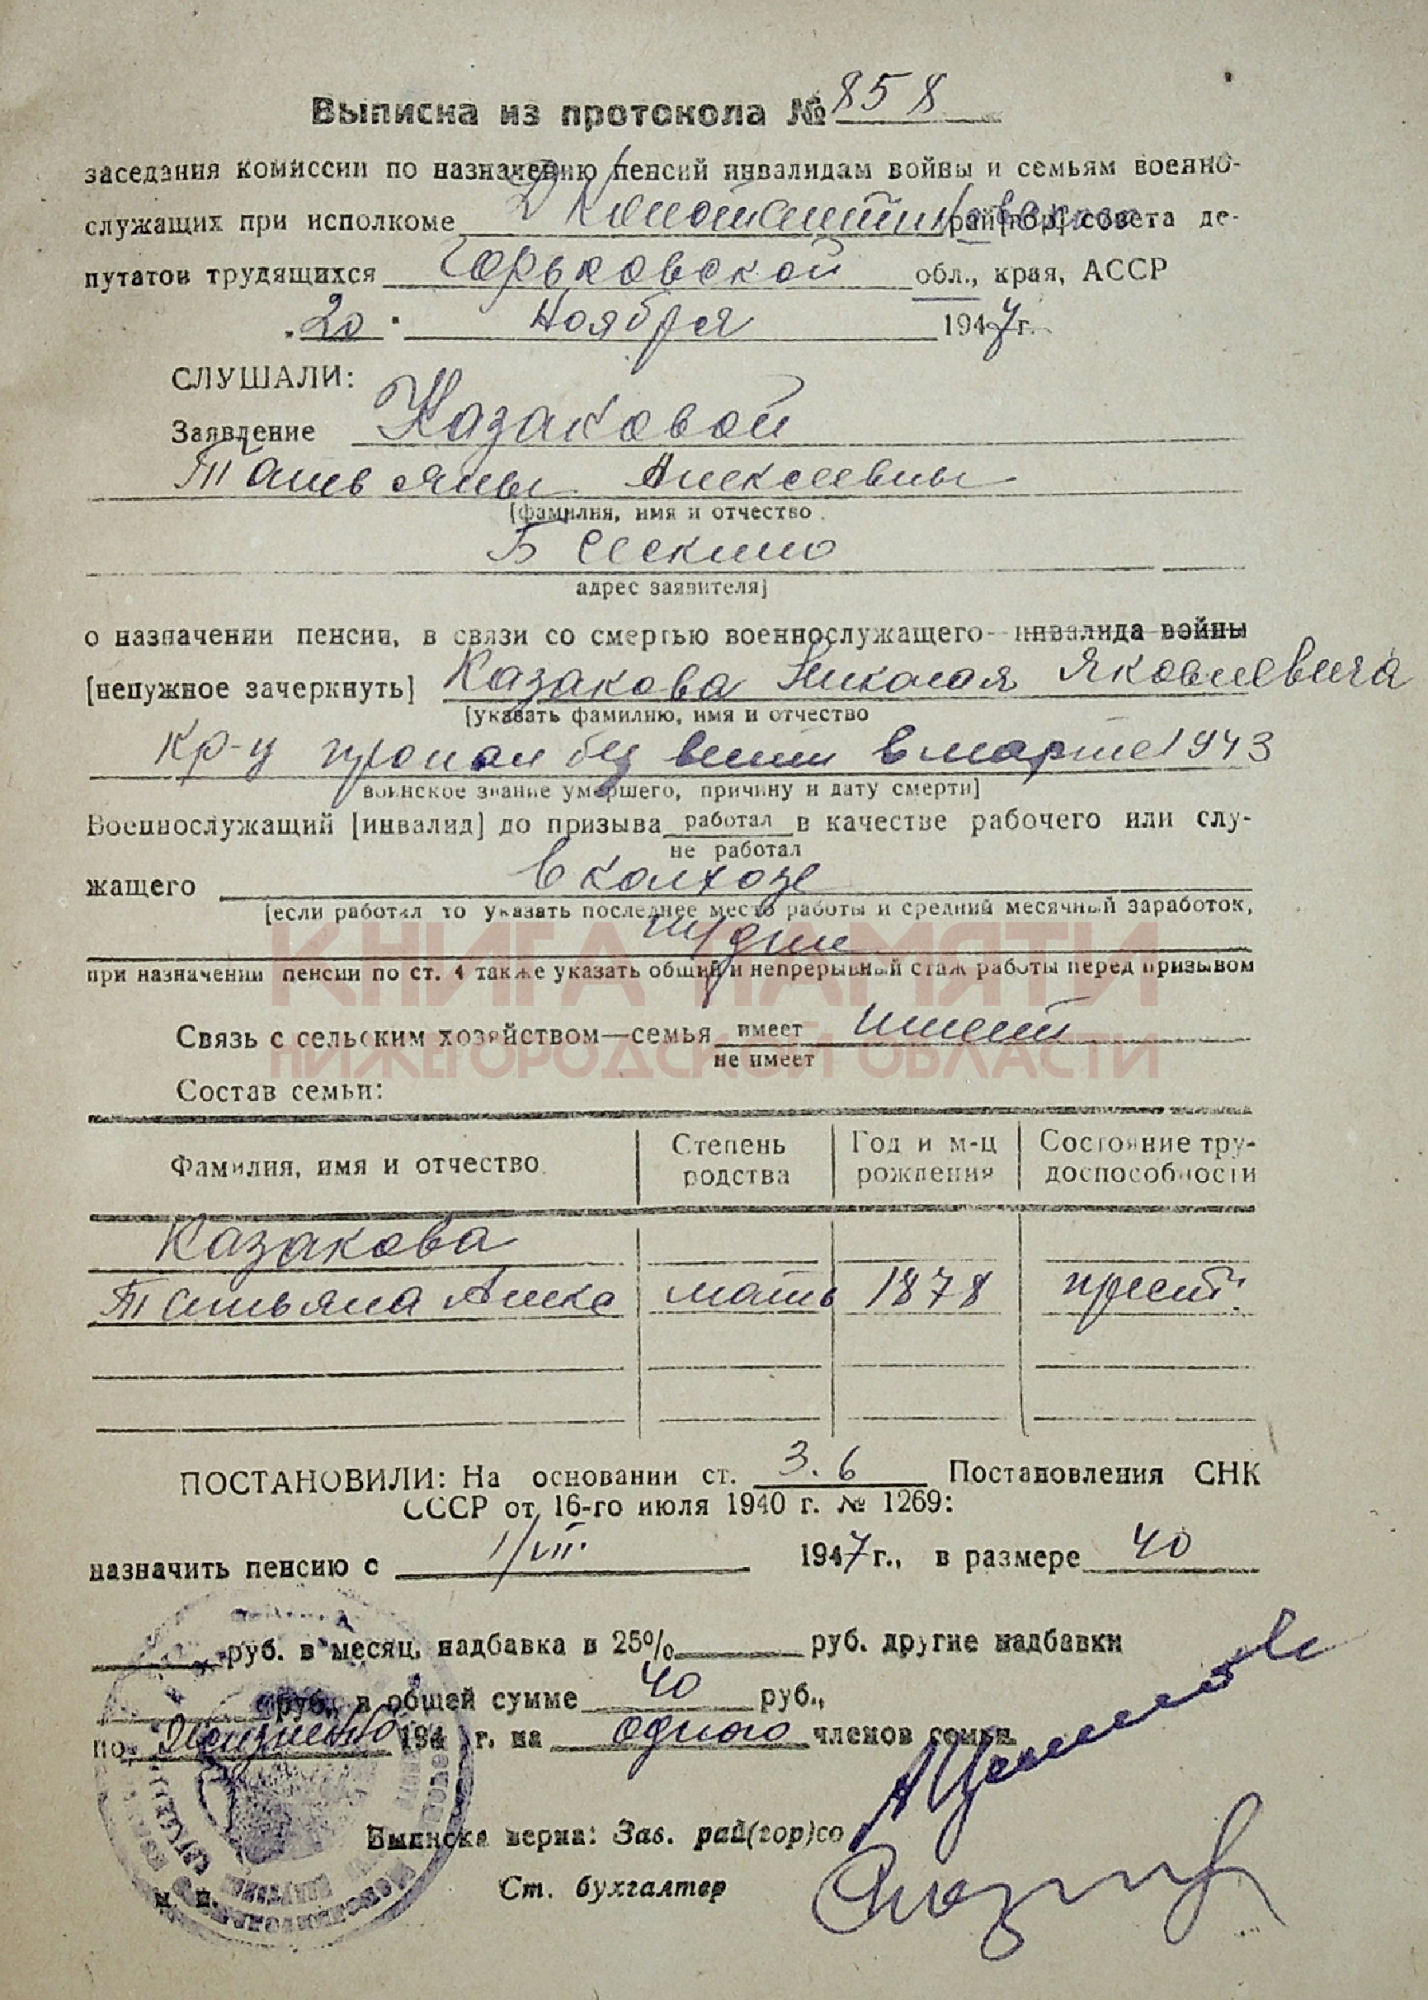 Выписка из протокола № 858
заседания комиссии по назначению пенсий инвалидам войны и семьям военно-
служащих при исполкоме Д Константиновского рай[гор] совета де-
путатов трудящихся Горьковской обл., края, АССР
„20" Ноября 1947 г.
СЛУШАЛИ:
Заявление Казаковой
Татьяны Алексеевны
[фамилия, имя и отчество
Б Сескино
адрес заявителя]
о назначении пенсии, в связи со смертью военнослужащего- инвалида войны
[ненужное зачеркнуть] Казакова Николая Яковлевича
[указать фамилию, имя и отчество
Кр-ц пропал без вести в марте 1943
воинское звание умершего, причину и дату смерти]
Военнослужащий [инвалид] до призыва работал в качестве рабочего или слу-
не работал
жащего в колхозе
[если работал то указать последнее место работы и средний месячный заработок,
при назначении пенсии по ст. 4 также указать общий и непрерывный стаж работы перед призывом
КНИГА ПАМЯТИ
НИЖЕГОРОДСКОЙ ОБЛАСТИ
Связь с сельским хозяйством—семья имеет имеет
не имеет
Состав семьи:
Фамилия, имя и отчество Степень родства Год и м-ц рождения Состояние тру-доспособности
Казакова
Татьяна Алекс мать 1878 прест.
ПОСТАНОВИЛИ: На основании ст. 3.6 Постановления СНК
СССР от 16-го июля 1940 г. № 1269:
назначить пенсию с 1/VII. 1947 г., в размере 40
руб. в месяц, надбавка в 25% руб. другие надбавки
руб., в общей сумме 40 руб.,
по Пожизненно 194 г. на одного членов семьи.
Выписка верна: Зав. рай(гор)со
Ст. бухгалтер
м. п.